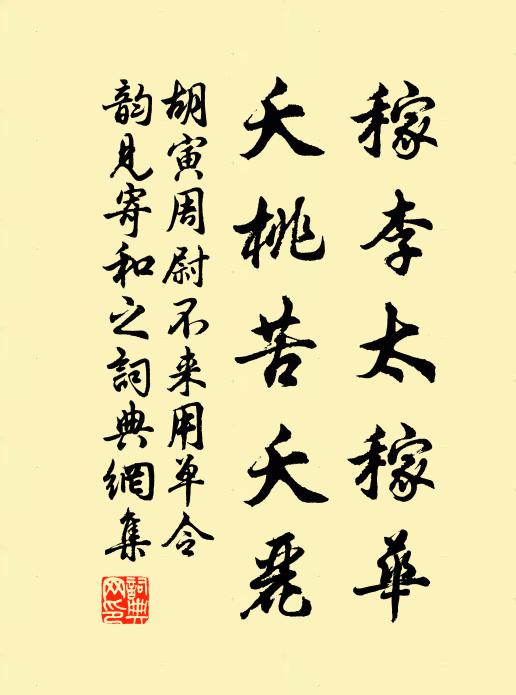 稼李太稼華
夭桃苦夭麗
胡寅周尉不来用单令
韵見寄和之詞典網集
詞典网印